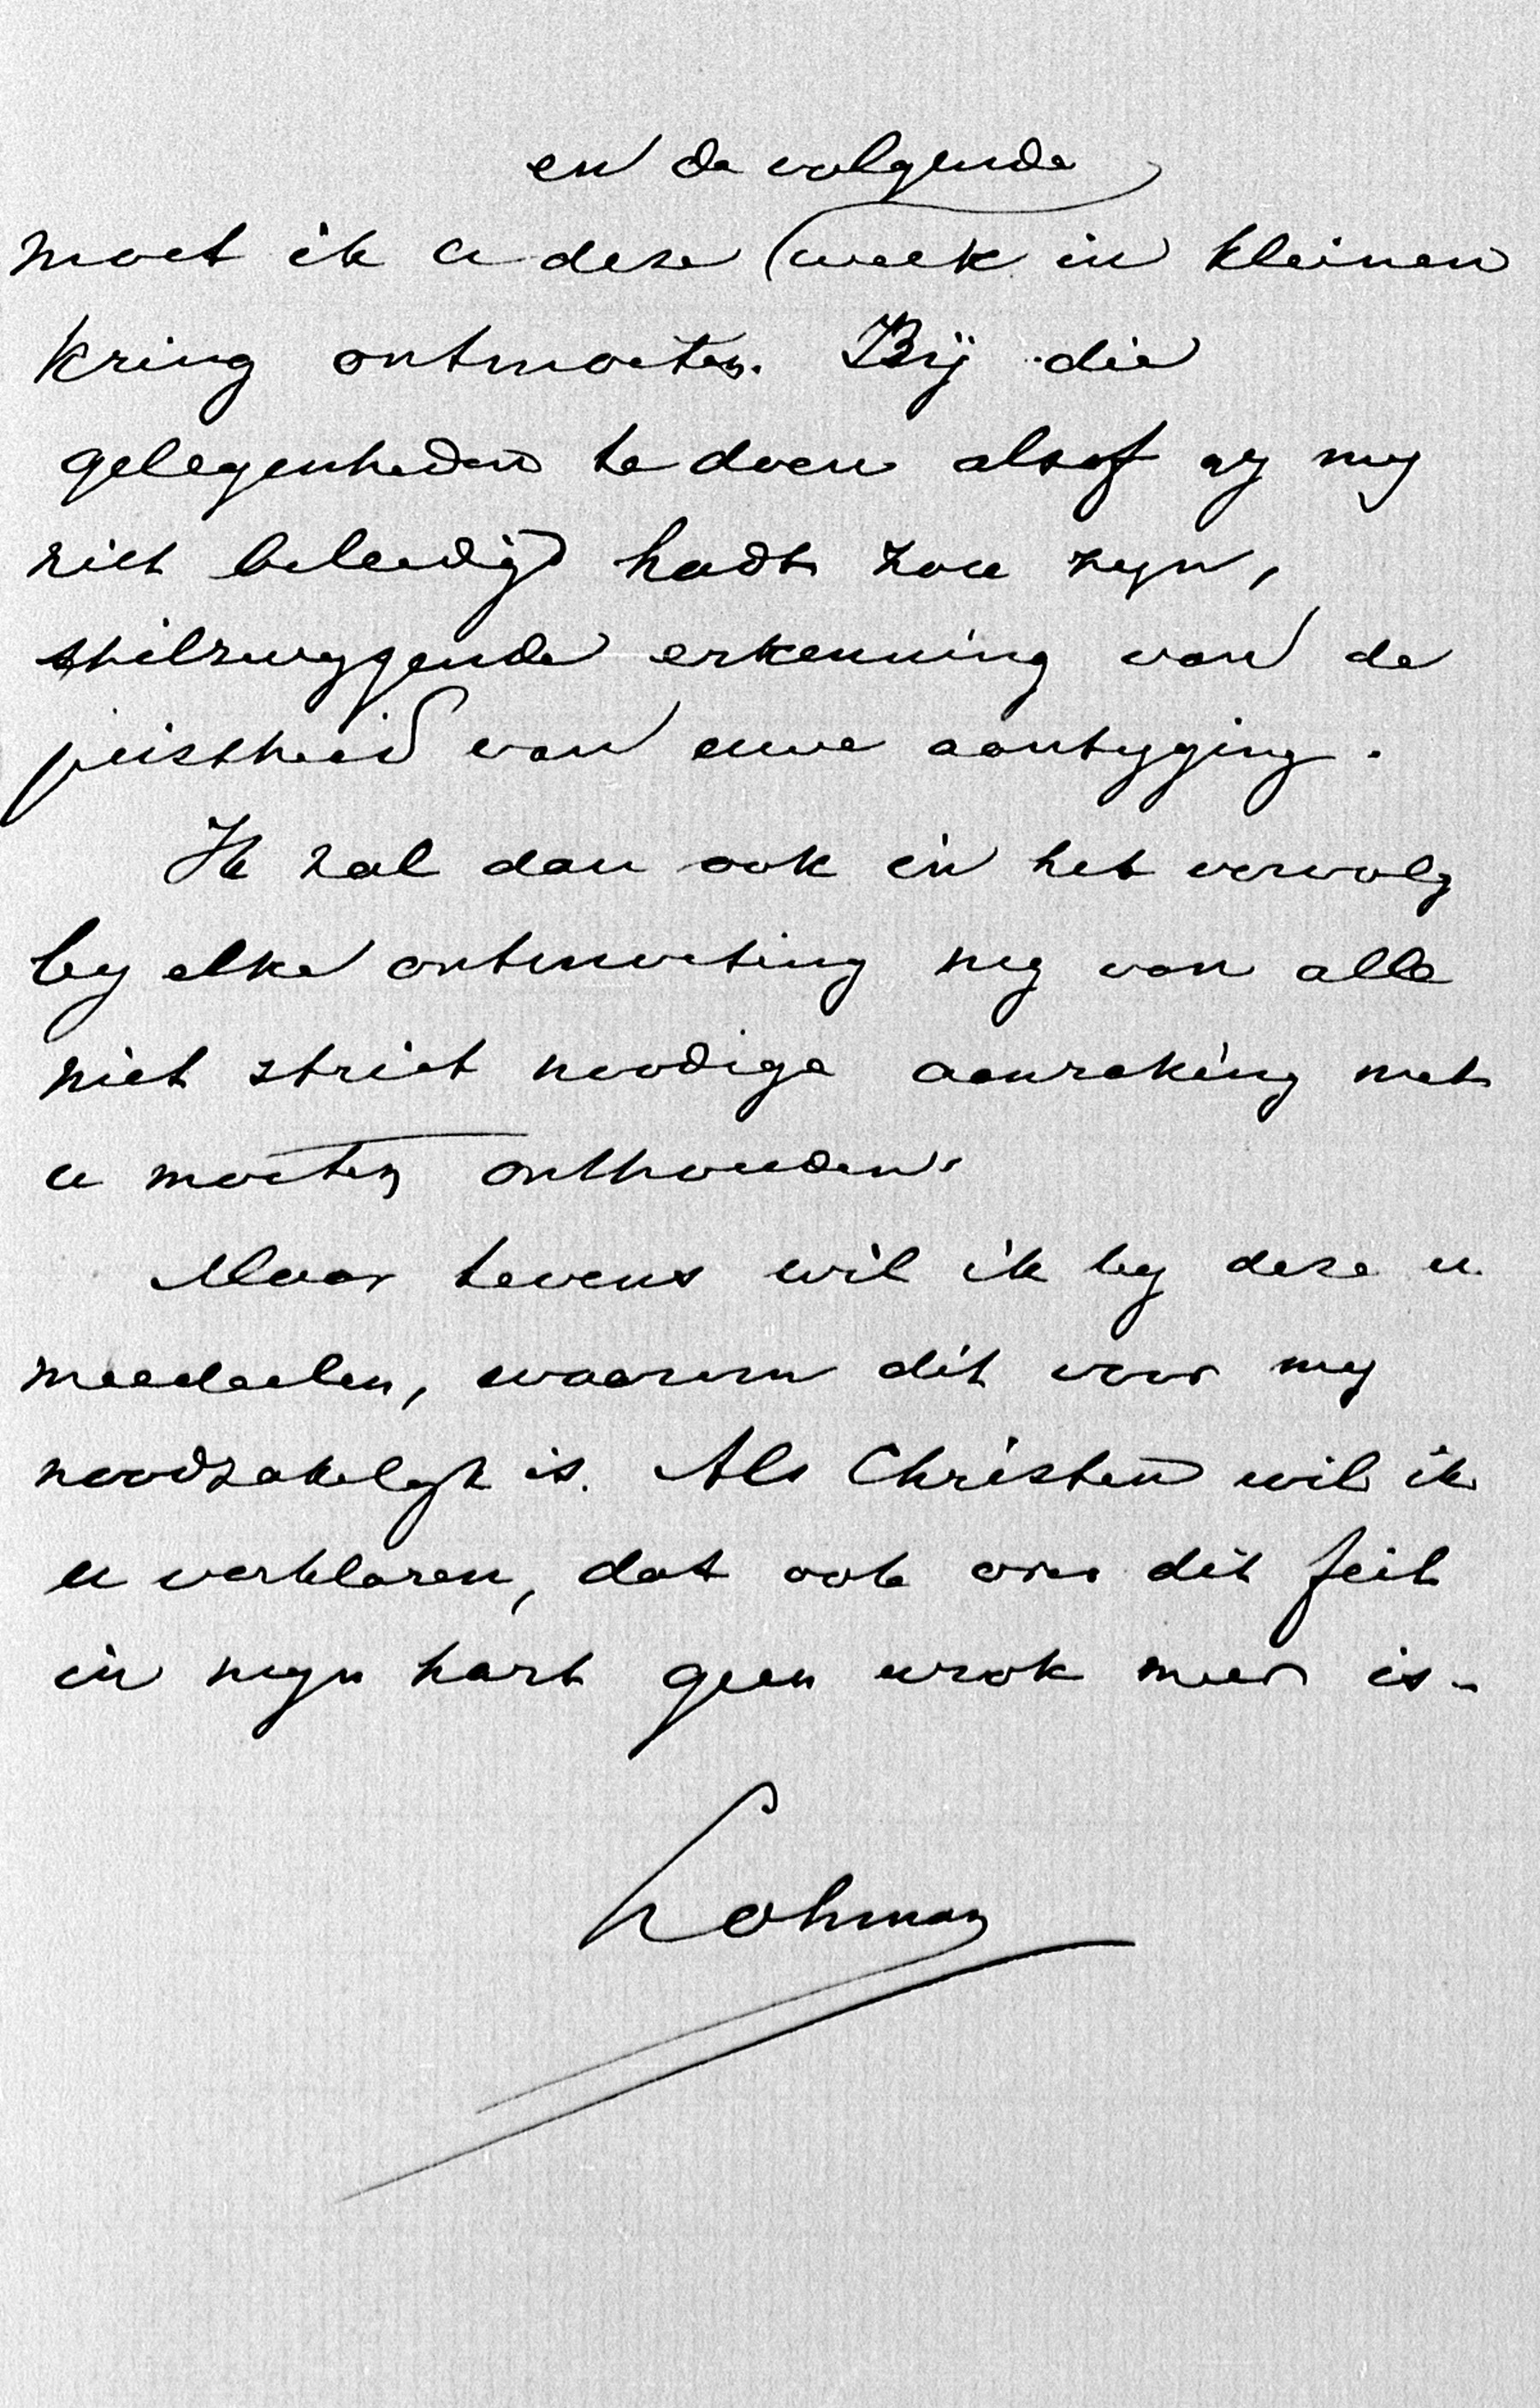 en de volgende
moet ik u deze week in kleinen
kring ontmoeten. Bij die
gelegenheden te doen alsof gy my
niet beleedigd hadt zou zyn,
stilzwygende erkenning van de
juistheid van uwe aantyging.
Ik zal dan ook in het vervolg
by elke ontmoeting my van alle
niet strict noodige aanraking met
u moeten onthouden.
Maar tevens wil ik by deze u
meedeelen, waarom dit voor my
noodzakelyk is. Als Christen wil ik
u verklaren, dat ook over dit feit
in myn hart geen wrok meer is.
Lohman